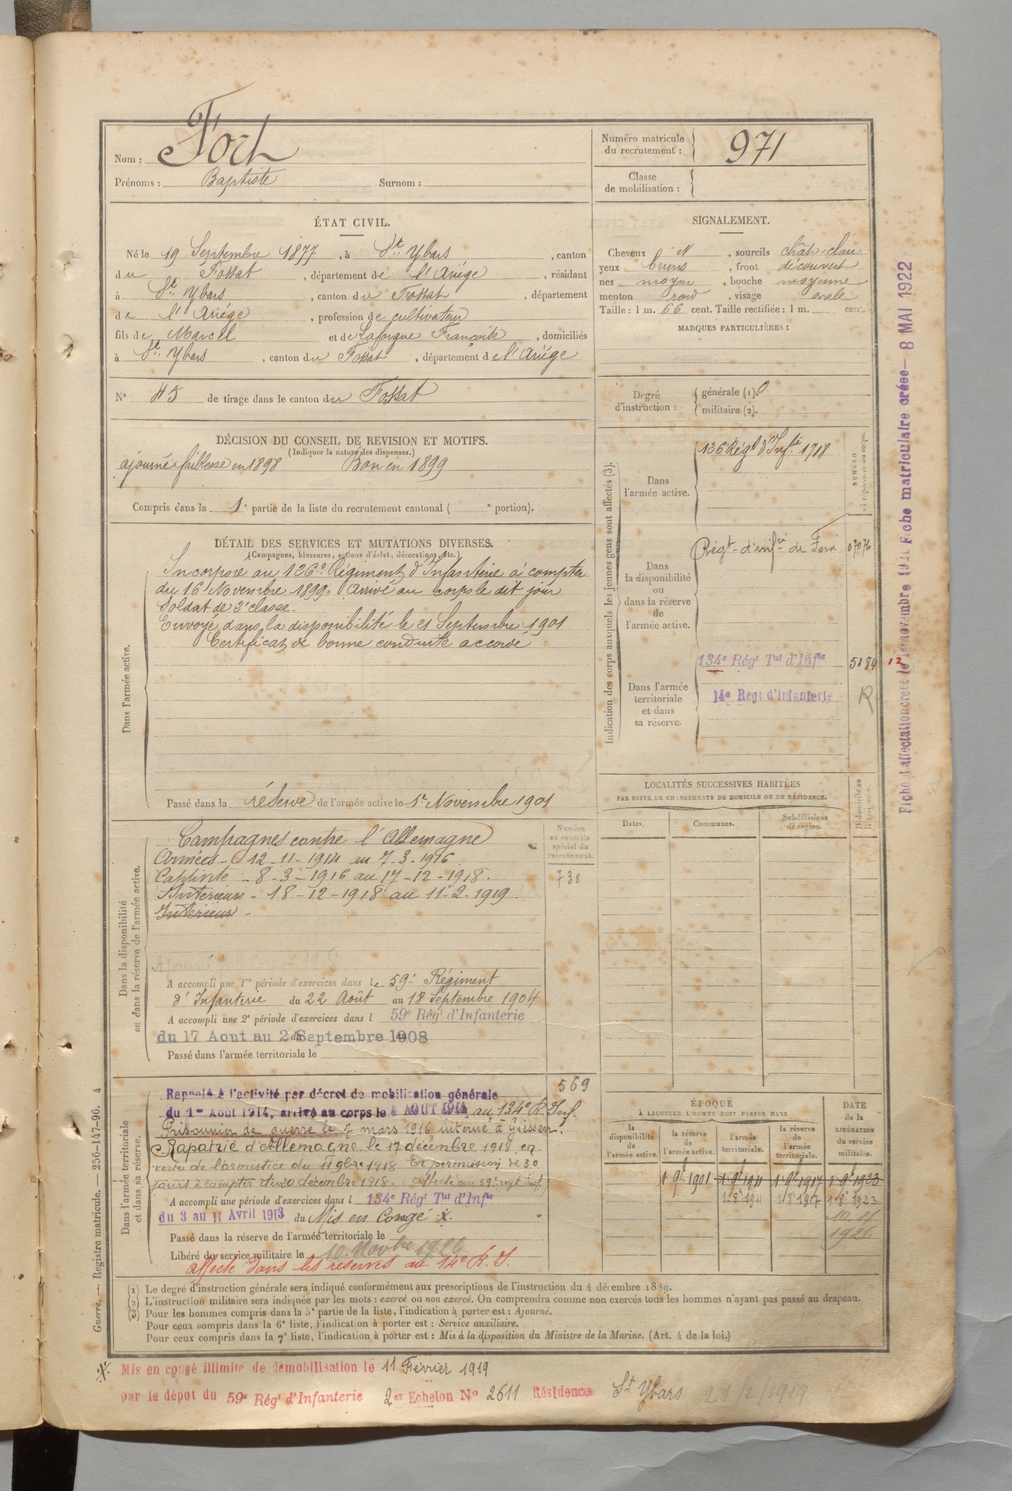 Nom : Fort
Prénoms : Baptiste Surnom :
Numéro matricule du recrutement : 971
Classe de mobilisation :
ÉTAT CIVIL.
Né le 19 Septembre 1877, à St. Ybars, canton
du Fossat, département de l'Ariége, résidant
à St. Ybars, canton du Fossat, département
de l'Ariége, profession de cultivateur
fils de Marcel et de Lafforgue Françoise, domiciliés
à St. Ybars, canton du Fossat, département de l'Ariége
N° 45 de tirage dans le canton du Fossat
SIGNALEMENT.
Cheveux N, sourcils chât-clair
yeux bruns, front découvert
nez moyen, bouche moyenne
menton rond, visage ovale
Taille : 1 m. 66 cent. Taille rectifiée : 1 m. cent.
MARQUES PARTICULIÈRES :
Degré d'instruction : générale (1). 0
militaire (2).
DÉCISION DU CONSEIL DE REVISION ET MOTIFS.
(Indiquer la nature des dispenses.)
ajourné faiblesse en 1898 Bon en 1899
Compris dans la 1e partie de la liste du recrutement cantonal ( e portion).
DÉTAIL DES SERVICES ET MUTATIONS DIVERSES.
(Campagnes, blessures, actions d'éclat, décorations, etc.)
Dans l'armée active.
Incorporé au 126e Régiment d'Infanterie à compter
du 16 Novembre 1899. Arrivé au corps le dit jour
Soldat de 2e classe.
Envoyé dans la disponibilité le 21 Septembre 1901
Certificat de bonne conduite accordé
Passé dans la réserve de l'armée active le 1er Novembre 1901
Indication des corps auxquels les jeunes gens sont affectés (3).
Dans l'armée active.
126 Régt d'Infte 1718
Dans la disponibilité ou dans la réserve de l'armée active.
Régt d'infie de Foix 07076
Dans l'armée territoriale et dans sa réserve.
134e Régt Tal d'Infie 5189 12
14e Régt d'Infanterie R
LOCALITÉS SUCCESSIVES HABITÉES
PAR SUITE DE CHANGEMENTS DE DOMICILE OU DE RÉSIDENCE.
Dates. Communes. Subdivisions de région.
Dans la disponibilité ou dans la réserve de l'armée active.
Numéro au contrôle spécial du recrutement.
738
Campagnes contre l'Allemagne
Armées - 12-11-1914 au 7-3-1916
Captivité - 8-3-1916 au 17-12-1918.
Intérieur - 18-12-1918 au 11-2-1919.
Intérieur -
A accompli une 1re période d'exercices dans le 59e Régiment
d'Infanterie du 22 Août au 18 Septembre 1904
A accompli une 2e période d'exercices dans l 59e Régt d'Infanterie
du 17 Aout au 2 Septembre 1908
Passé dans l'armée territoriale le
Dans l'armée territoriale et dans sa réserve.
569
Rappelé à l'activité par décret de mobilisation générale
du 1er Août 1914, arrivé au corps le AOUT 1914 au 134e R. Inf.
Prisonnier de guerre le 7 mars 1916 interné à Giessen.
Rapatrié d'Allemagne le 17 décembre 1918, en
vertu de l'armistice du 11 9bre 1918 En permission de 30
jours à compter du 20 décembre 1918. Affecté au 59e regt Inf
A accompli une période d'exercices dans l 134e Régt Tal d'Infie
du 3 au 11 Avril 1913 du Mis en Congé
Passé dans la réserve de l'armée territoriale le
Libéré du service militaire le 10 Novbre 1926
affecté dans les réserves au 14e R. I.
ÉPOQUE
A LAQUELLE L'HOMME DOIT PASSER DANS
la disponibilité de l'armée active. la réserve de l'armée active. l'armée territoriale. la réserve de l'armée territoriale.
DATE de la LIBÉRATION du service militaire.
1 9e 1901 1 9e 1911 1 9e 1917 1 9e 1923
1 8e 1911 1 8e 1917 1 8e 1923
10. 11
1926
(1) Le degré d'instruction générale sera indiqué conformément aux prescriptions de l'instruction du 4 décembre 1889.
(2) L'instruction militaire sera indiquée par les mots : exercé ou non exercé. On comprendra comme non exercés tous les hommes n'ayant pas passé au drapeau.
(3) Pour les hommes compris dans la 5e partie de la liste, l'indication à porter est : Ajourné.
Pour ceux compris dans la 6e liste, l'indication à porter est : Service auxiliaire.
Pour ceux compris dans la 7e liste, l'indication à porter est : Mis à la disposition du Ministre de la Marine. (Art. 4 de la loi.)
Mis en congé illimité de démobilisation le 11 Février 1919
par le dépôt du 59e Régt d'Infanterie 2er Echelon N° 2611 Résidence St Ybars 21/2/1919
Guerre. — Registre matricule. — 256-147-96. 4
Fiche matriculaire créée - 8 MAI 1922